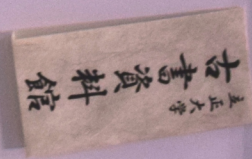 立正大学
古書資料館